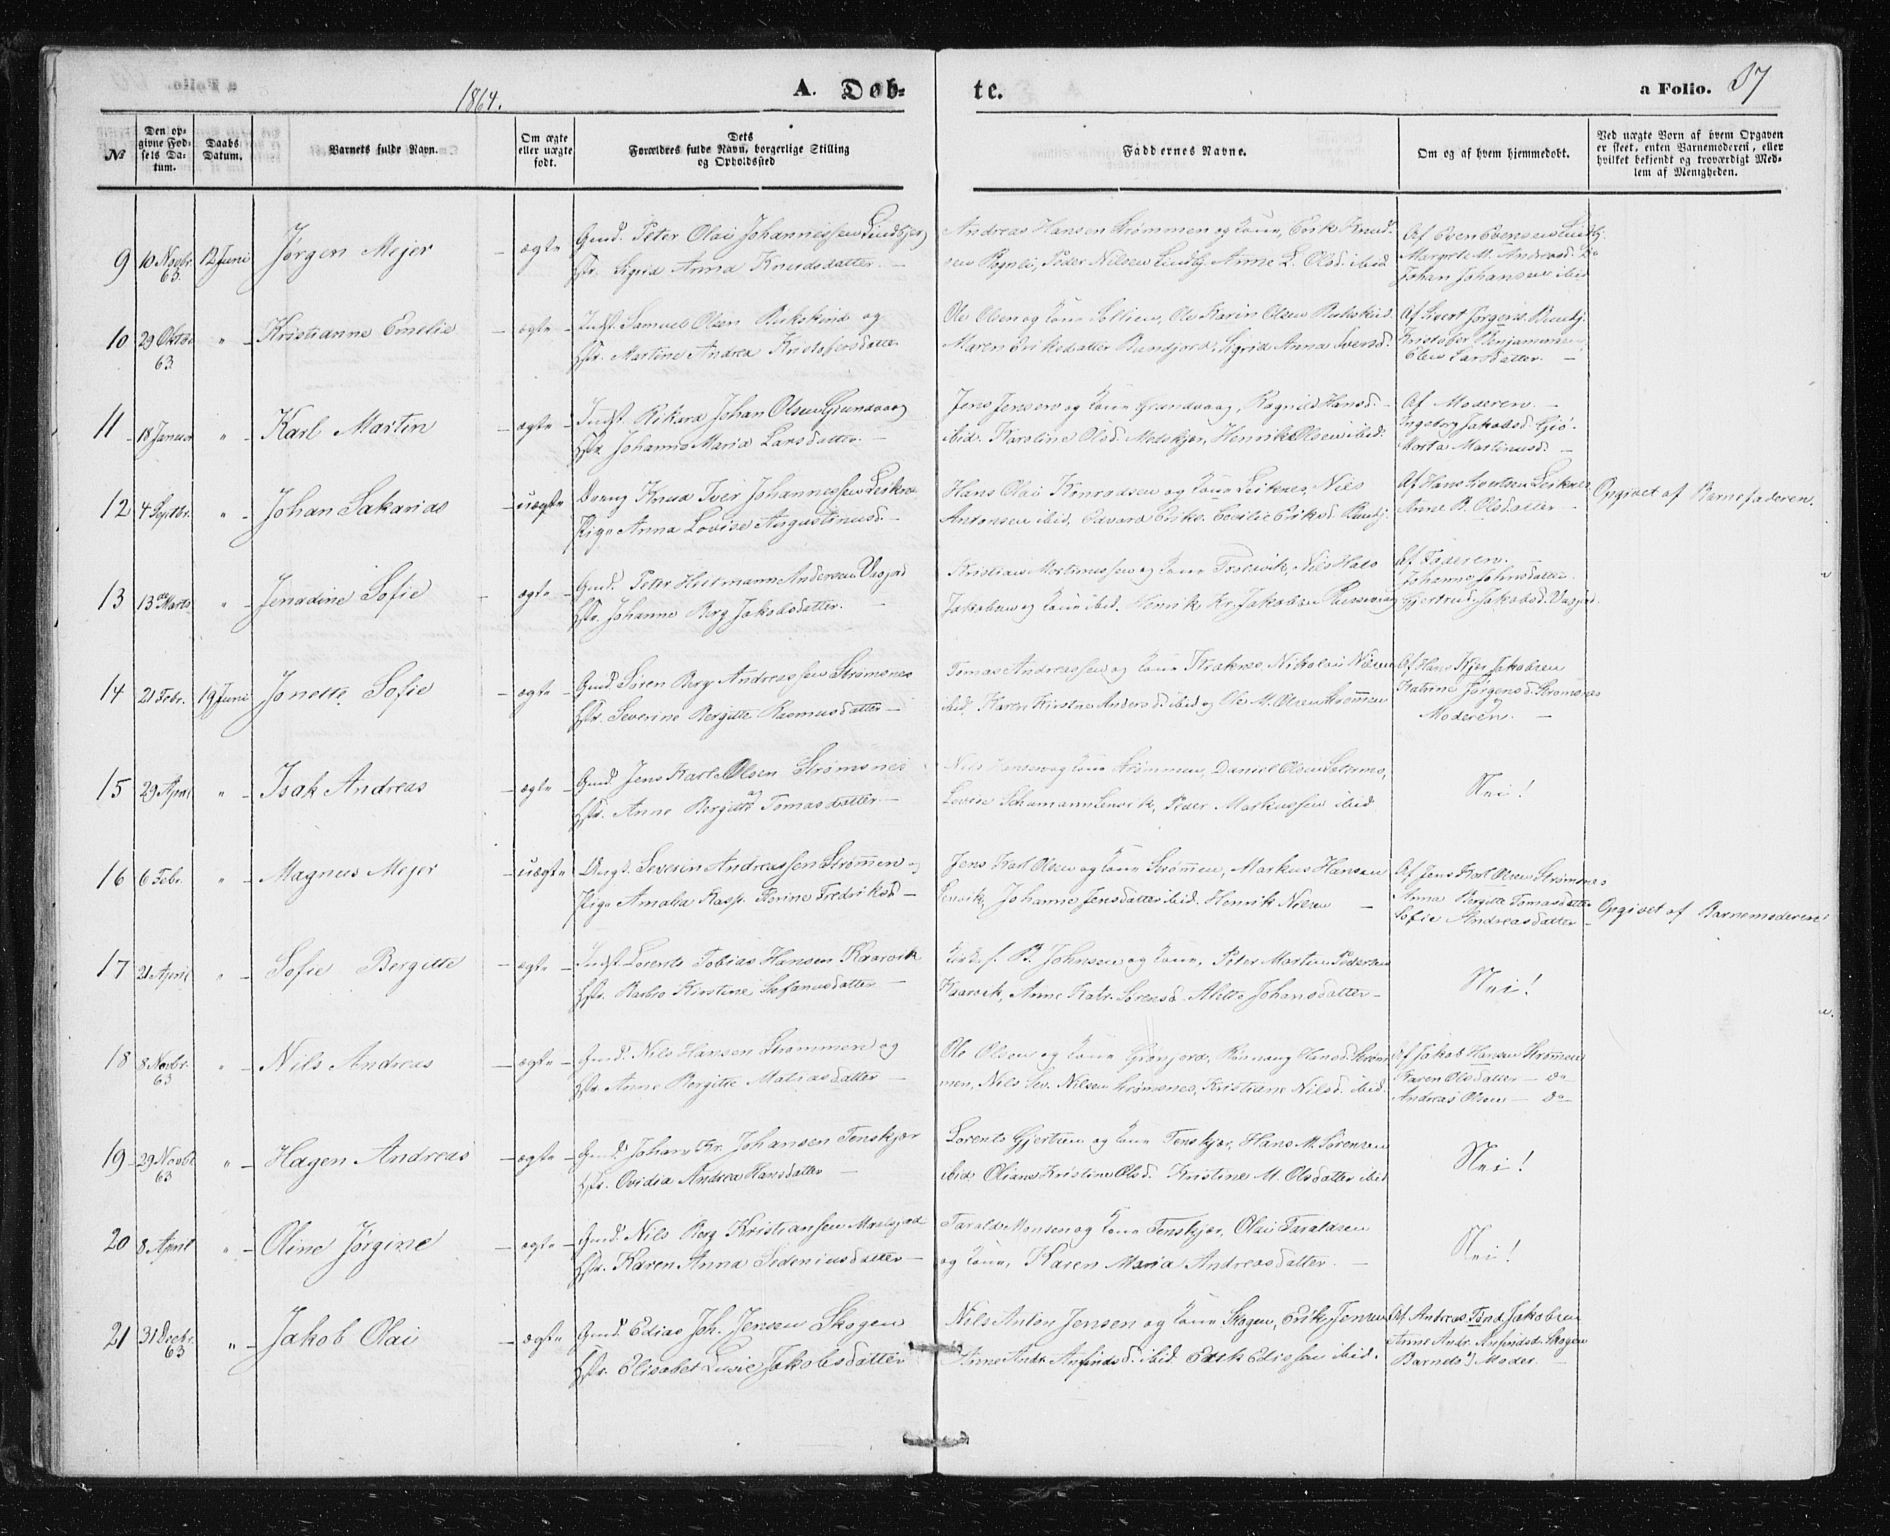 1864.
A. Døb-
te.
a Folio. 37
№
Den op-
givne Fød-
sels Da-
tum.
Daabs
Datum.
Barnets fulde Navn.
Om ægte
eller uægte
født.
Dets
Forældres fulde Navn, borgerlige Stilling
og Opholdssted
Faddernes Navne.
Om og af hvem hjemmedøbt.
Ved uægte Børn af hvem Opgaven
er skeet, enten Barnemoderen, eller
hvilket bekjendt og troværdigt Med-
lem af Menigheden.
9 10 Novbr. 63 12 Juni Jørgen Mejer ægte
Gmd. Peter Olai Johannessen
Hstr. Sigrid Anna Knudsdatter.
Andreas Hansen Strømmen og Kone, Erik Knud-
sen Peder Nilsen Anne L. Olsd. ibid
Af Even Evensen
Margrete M. Andreasd. Do
Johan Johansen ibid
10 29 Oktbr 63 " Kristianne Emelie ægte
Indst. Samuel Olsen Bukskind og
Hstr. Martine Andrea Kristofersdatter
Ole Olsen og Kone Ole Karin Olsen Bukskind
Maren Eriksdatter Sigrid Anna Svensd.
Af Sivert Jørgens.
Kristofer Benjaminsen
Elen Larsdatter.
11 18 Januar " Karl Martin ægte
Indst. Rikard Johan Olsen Grundvaag
Hstr. Johanna Maria Larsdatter.
Jens Jensen og Kone Grundvaag, Ragnild Hansd.
ibid. Karoline Olsd. Henrik Olsen ibid.
Af Moderen.
Ingeborg Jakobsd.
Marta Martinusd.
12 4 Septbr. " Johan Sakarias uægte
Knud Iver Johannessen Leiknes
Pige Anna Lovise Augustinusd.
Hans Olai Konradsen og Kone Leiknes, Nils
Antonsen ibid. Edvard Eriks. Cecilie Eriksd.
Af Hans Leiknes
Anne B. Olsdatter
Opgivet af Barnefaderen.
13 13de Marts " Jenodine Sofie ægte
Gmd. Peter Hitmann Andersen Vasjord
Hstr. Johanna Berg Jakobsdatter.
Kristian Mortensen og Kone Nils Hals
Jakobsen og Kone ibid. Henrik Kr. Jakobsen
Af Faderen.
Johanna Johnsdatter.
Gjertrud Jakobsd. Vasjord.
14 21 Febr. 19 Juni Jonette Sofie ægte
Gmd. Søren Berg Andreassen Strømsnes
Hstr. Severine Bergitte Rasmusdatter
Tomas Andreassen og Kone Krakenes, Nikolai Nilsen
ibid. Karen Kirstne Andersd. ibid og Ole M. Olsen Strømmen
Af Hans Kjer Jakobsen
Katrine Jørgensd. Strømsnes
og Moderen.
15 29 April " Isak Andreas ægte
Gmd. Jens Karl Olsen Strømsnes
Hstr. Anne Bergitte Tomasdatter
Nils Hansen og Kone Strømmen, Daniel Olsen
Lovise Schumann Leirvik, Peder Markussen ibid
Nei!
16 6 Febr. " Magnus Mejer uægte
Ungk. Severin Andreassen Strømmen og
Pige Amalia Rasp. Karine Fredriksd
Jens Karl Olsen og Kone Strømmen, Markus Hansen
Leirvik, Johanna Jensdatter ibid. Henrik Nilsen
Af Jens Karl Olsen Strømsnes
Anna Bergitte Tomasdatter
Sofie Andreasdatter
Opgivet af Barnemoderen
17 21 April " Sofie Bergitte ægte
Indst. Lorents Tobias Hansen Kaarvik
Hstr. Barbro Kirstine Stefanusdatter
B. Johnsen og Kone, Peter Martin Pedersen
Kaarvik, Anne Katr. Sørensd. Alette Johansdatter
Nei!
18 8 Novbr. 63 " Nils Andreas ægte
Gmd. Nils Hansen Strømmen og
Hstr Anne Bergitte Matiasdatter
Ole Olsen og Kone Grønjord, Hansd. Strøm-
men, Nils Sev. Nilsen Strømsnes, Kristiane Nilsd. ibid.
Af Jakob Hansen Strømmen
Karen Olsdatter do
Andreas Olsen do
19 29 Novbr 63 " Hagen Andreas ægte
Gmd. Johan Kr. Johansen Tenskjær
Hstr. Ovidia Andrea Hansdatter
Lorents Gjertsen og Kone Tenskjær, Hans M. Sørensen
ibid, Oliane Kristine Olsd. Kristine M. Olsdatter ibid
Nei!
20 8 April " Oline Jørgine ægte
Gmd. Nils Berg Kristiansen
Hstr. Karen Anna Sedeniusdatter
Tarald Monsen og Kone Tenskjær, Olai Taraldsen
og Kone, Karen Maria Andreasdatter.
Nei!
21 31 Decbr. 63 " Jakob Olai ægte
Gmd. Edias Joh. Jensen Skogen
Hstr. Elisabet Lucie Jakobsdatter
Nils Anton Jensen og Kone Skogen, Erik Jensen
Anne Andr. Anfindsd. ibid. Erik Ediassen ibid.
Af Andreas Jakobsen
Anne Andr. Anfindsd. Skogen
Barnets Moder.